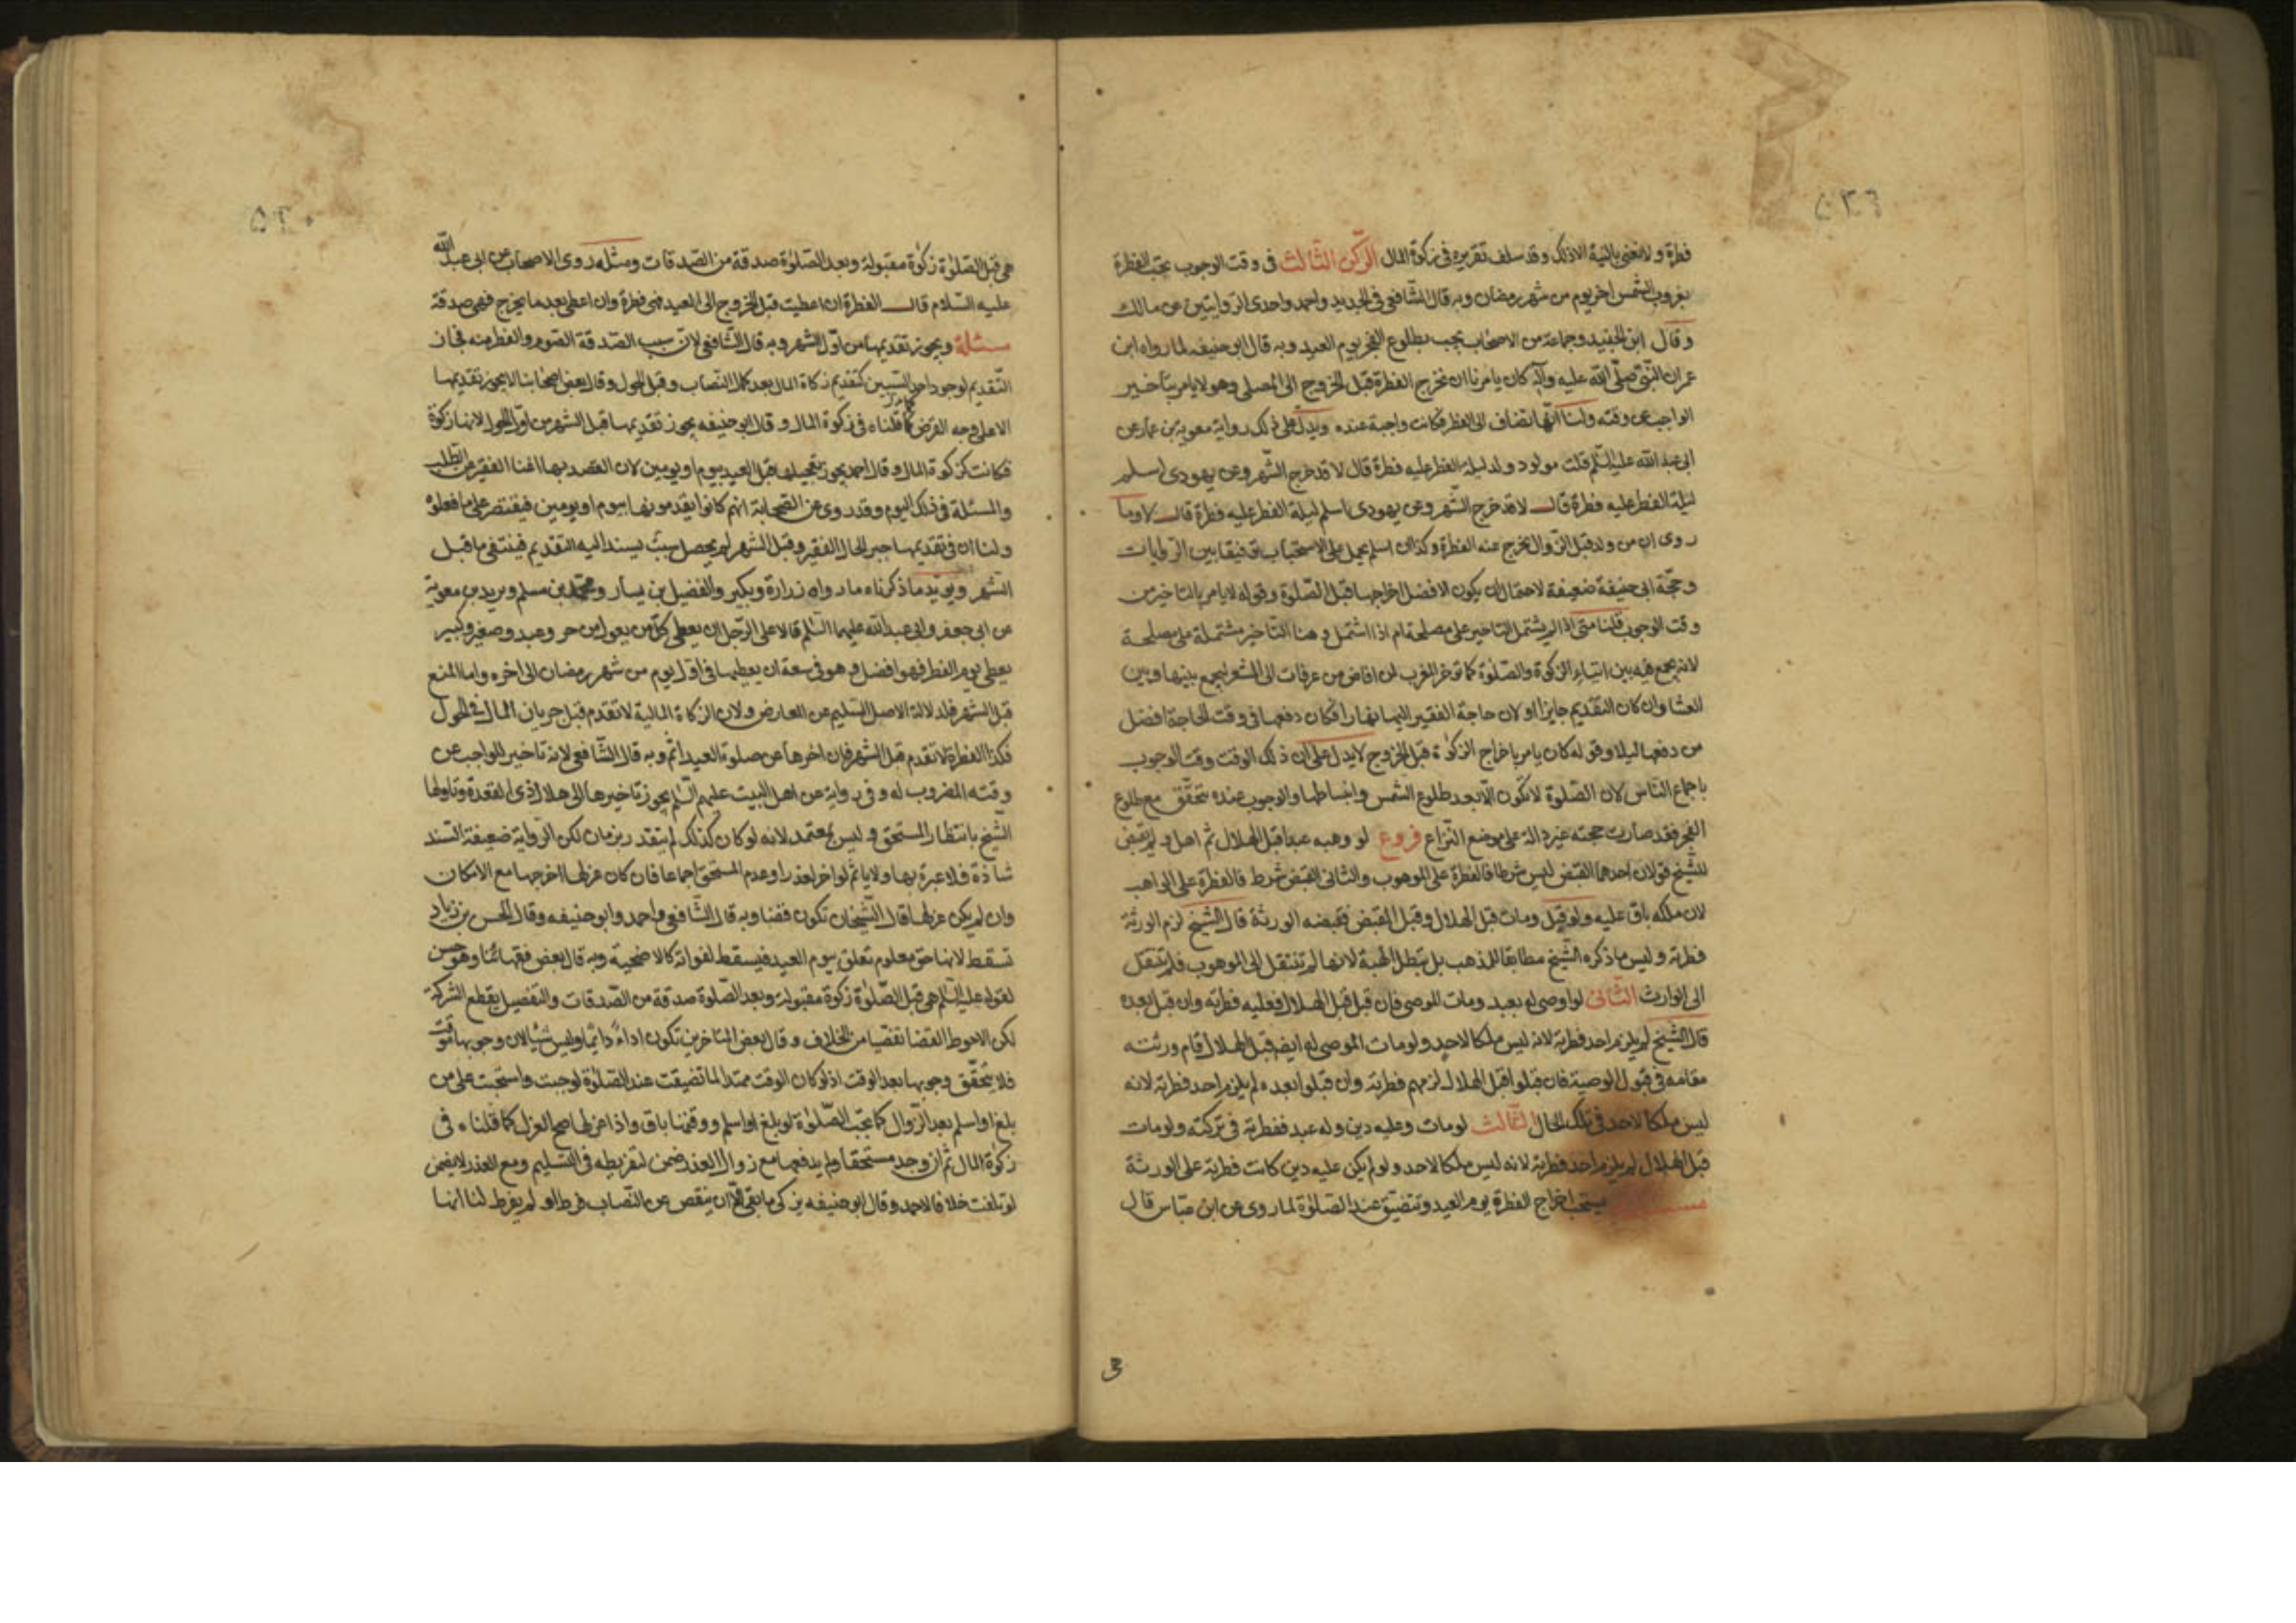 فطرة ولا نعنى بالنية الا ذلك وقد سلف تقريره فى زكوة المال الركن الثالث فى وقت الوجوب تجب الفطرة
بغروب الشمس اخر يوم من شهر رمضان وبه قال الشافعى فى الجديد واحمد واحدى الروايتين عن مالك
وقال ابن الجنيد وجماعة من الاصحاب يجب بطلوع الفجر يوم العيد وبه قال ابو حنيفه لما رواه ابن
عمر ان النبى صلى الله عليه وآله كان يامرنا ان نخرج الفطرة قبل الخروج الى المصلى وهو لا يامر بتاخير
الواجب عن وقته ولنا انها تضاف الى الفطر فكانت واجبة عنده ويدل على ذلك رواية معوية بن عمار عن
ابى عبد الله عليه السلم قلت مولود ولد ليلة الفطر عليه فطرة قال لا قد خرج الشهر وعن يهودى اسلم
ليلة الفطر عليه فطرة قال لا قد خرج الشهر وعن يهودى اسلم ليلة الفطر عليه فطرة قال لا وما
روى ان من ولد قبل الزوال يخرج عنه الفطرة وكذا ان اسلم يحمل على الاستحباب توفيقا بين الروايات
وحجة ابى حنيفة ضعيفة لاحتمال ان يكون الافضل اخراجها قبل الصلوة وقوله لا يامر بالتاخير من
وقت الوجوب قلنا متى اذا لم يشتمل التاخير على مصلحة ام اذا اشتمل وهنا التاخير مشتملة على مصلحة
لانه يجمع فيه بين ايتاء الزكوة والصلوة كما توخر المغرب لمن افاض من عرفات الى المشعر ليجمع بينها وبين
العشا وان كان التقديم جايزا ولان حاجة الفقير اليها نهارا فكان دفعها فى وقت الحاجة افضل
من دفعها ليلا وقوله كان يامر باخراج الزكوة قبل الخروج لا يدل على ان ذلك الوقت وقت الوجوب
باجماع الناس لان الصلوة لا تكون الا بعد طلوع الشمس وانبساطها والوجوب عنده يتحقق مع طلوع
الفجر فقد صارت حجته غير دالة على موضع النزاع فروع لو وهبه عبدا قبل الهلال ثم اهل ولم يقبض
للشيخ قولان احدهما القبض ليس شرطا فالفطرة على الموهوب والثانى القبض شرط فالفطرة على الواهب
لان ملكه باق عليه ولو قبل ومات قبل الهلال وقبل القبض فقبضه الورثة قال الشيخ لزم الورثة
فطرته وليس ما ذكره الشيخ مطابقا للمذهب بل تبطل الهبة لانها لم تنتقل الى الموهوب فلم تنتقل
الى الوارث الثانى لو اوصى له بعبد ومات الموصى فان قبل قبل الهلال فعليه فطرته وان قبل بعده
قال الشيخ لم يلزم احد فطرته لانه ليس ملكا لاحد ولو مات الموصى له ايضا قبل الهلال قام ورثته
مقامه فى قبول الوصية فان قبلوا قبل الهلال لزمهم فطرته وان قبلوا بعده لم يلزم احد فطرته لانه
ليس ملكا لاحد فى تلك الحال الثالث لو مات وعليه دين وله عبد ففطرته فى تركته ولو مات
قبل الهلال لم يلزم احد فطرته لانه ليس ملكا لاحد ولو لم يكن عليه دين كانت فطرته على الورثة
يستحب اخراج الفطرة يوم العيد وتتضيق عند الصلوة لما روى عن ابن عباس قال
هى قبل الصلوة زكوة مقبولة وبعد الصلوة صدقة من الصدقات ومثله روى الاصحاب عن ابى عبد الله
عليه السلام قال الفطرة ان اعطيت قبل الخروج الى العيد فهى فطرة وان اعطى بعد ما يخرج فهى صدقة
مسئلة ويجوز تقديمها من اول الشهر وبه قال الشافعى لان سبب الصدقة الصوم والفطر منه فجاز
التقديم لوجود احد السببين كتقديم زكاة المال بعد كمال النصاب وقبل الحول وقال بعض اصحابنا لا يجوز تقديمها
الا على وجه القرض كما قلناه فى زكوة المال وقال ابو حنيفه يجوز تقديمها قبل الشهر من اول الحول لانها زكوة
فكانت كزكوة المال وقال احمد يجوز تعجيلها قبل العيد بيوم او يومين لان القصد بها اغنا الفقير عن الطلب
والمسئلة فى ذلك اليوم وقد روى عن الصحابة انهم كانوا يقدمونها بيوم او يومين فيقتصر على ما فعلوه
ولنا ان فى تقديمها جبر الحال الفقير وقبل الشهر لم يحصل سبب يستند اليه التقديم فينتفى ما قبل
الشهر ويويد ما ذكرناه ما رواه زرارة وبكير والفضيل بن يسار ومحمد بن مسلم وبريد بن معوية
عن ابى جعفر وابى عبد الله عليهما السلم قالا على الرجل ان يعطى كل من يعول من حر وعبد وصغير وكبير
يعطى يوم الفطر فهو افضل وهو فى سعة ان يعطيها فى اول يوم من شهر رمضان الى اخره واما المنع
قبل الشهر فلدلالة الاصل السليم عن المعارض ولان الزكاة المالية لا تقدم قبل جريان المال فى الحول
فكذا الفطرة لا تقدم قبل الشهر فان اخرها عن صلوة العيد اثم وبه قال الشافعى لانه تاخير للواجب عن
وقته المضروب له وفى رواية عن اهل البيت عليهم السلم يجوز تاخيرها الى هلال ذى القعدة وتاولها
الشيخ بانتظار المستحق وليس بمعتمد لانه لو كان كذلك لم يتقدر بزمان لكن الرواية ضعيفة السند
شاذة فلا عبرة بها ولا ياثم لو اخر لعذر او عدم المستحق اجماعا فان كان عزلها اخرجها مع الامكان
وان لم يكن عزلها قال الشيخان تكون قضا وبه قال الشافعى واحمد وابو حنيفه وقال الحسن بن زياد
تسقط لانها حق معلوم تعلق بيوم العيد فيسقط لفواته كالاضحية وبه قال بعض فقهائنا وهو حسن
لقوله عليه السلم هى قبل الصلوة زكوة مقبولة وبعد الصلوة صدقة من الصدقات والتفصيل يقطع الشركة
لكن الاحوط القضا تفصيا من الخلاف وقال بعض المتاخرين تكون اداءً دايما وليس شيئا لان وجوبها موقت
فلا يتحقق وجوبها بعد الوقت اذ لو كان الوقت ممتدا لما تضيقت عند الصلوة لوجبت واستحبت على من
بلغ او اسلم بعد الزوال كما تجب الصلوة لو بلغ او اسلم ووقتها باق واذا عزلها صح العزل كما قلناه فى
زكوة المال ثم ان وجد مستحقا ولم يدفعها مع زوال العذر ضمن لتفريطه فى التسليم ومع العذر لا يضمن
لو تلفت خلافا لاحمد وقال ابو حنيفه يزكى ما بقى الا ان ينقص عن النصاب فرط او لم يفرط لنا انها